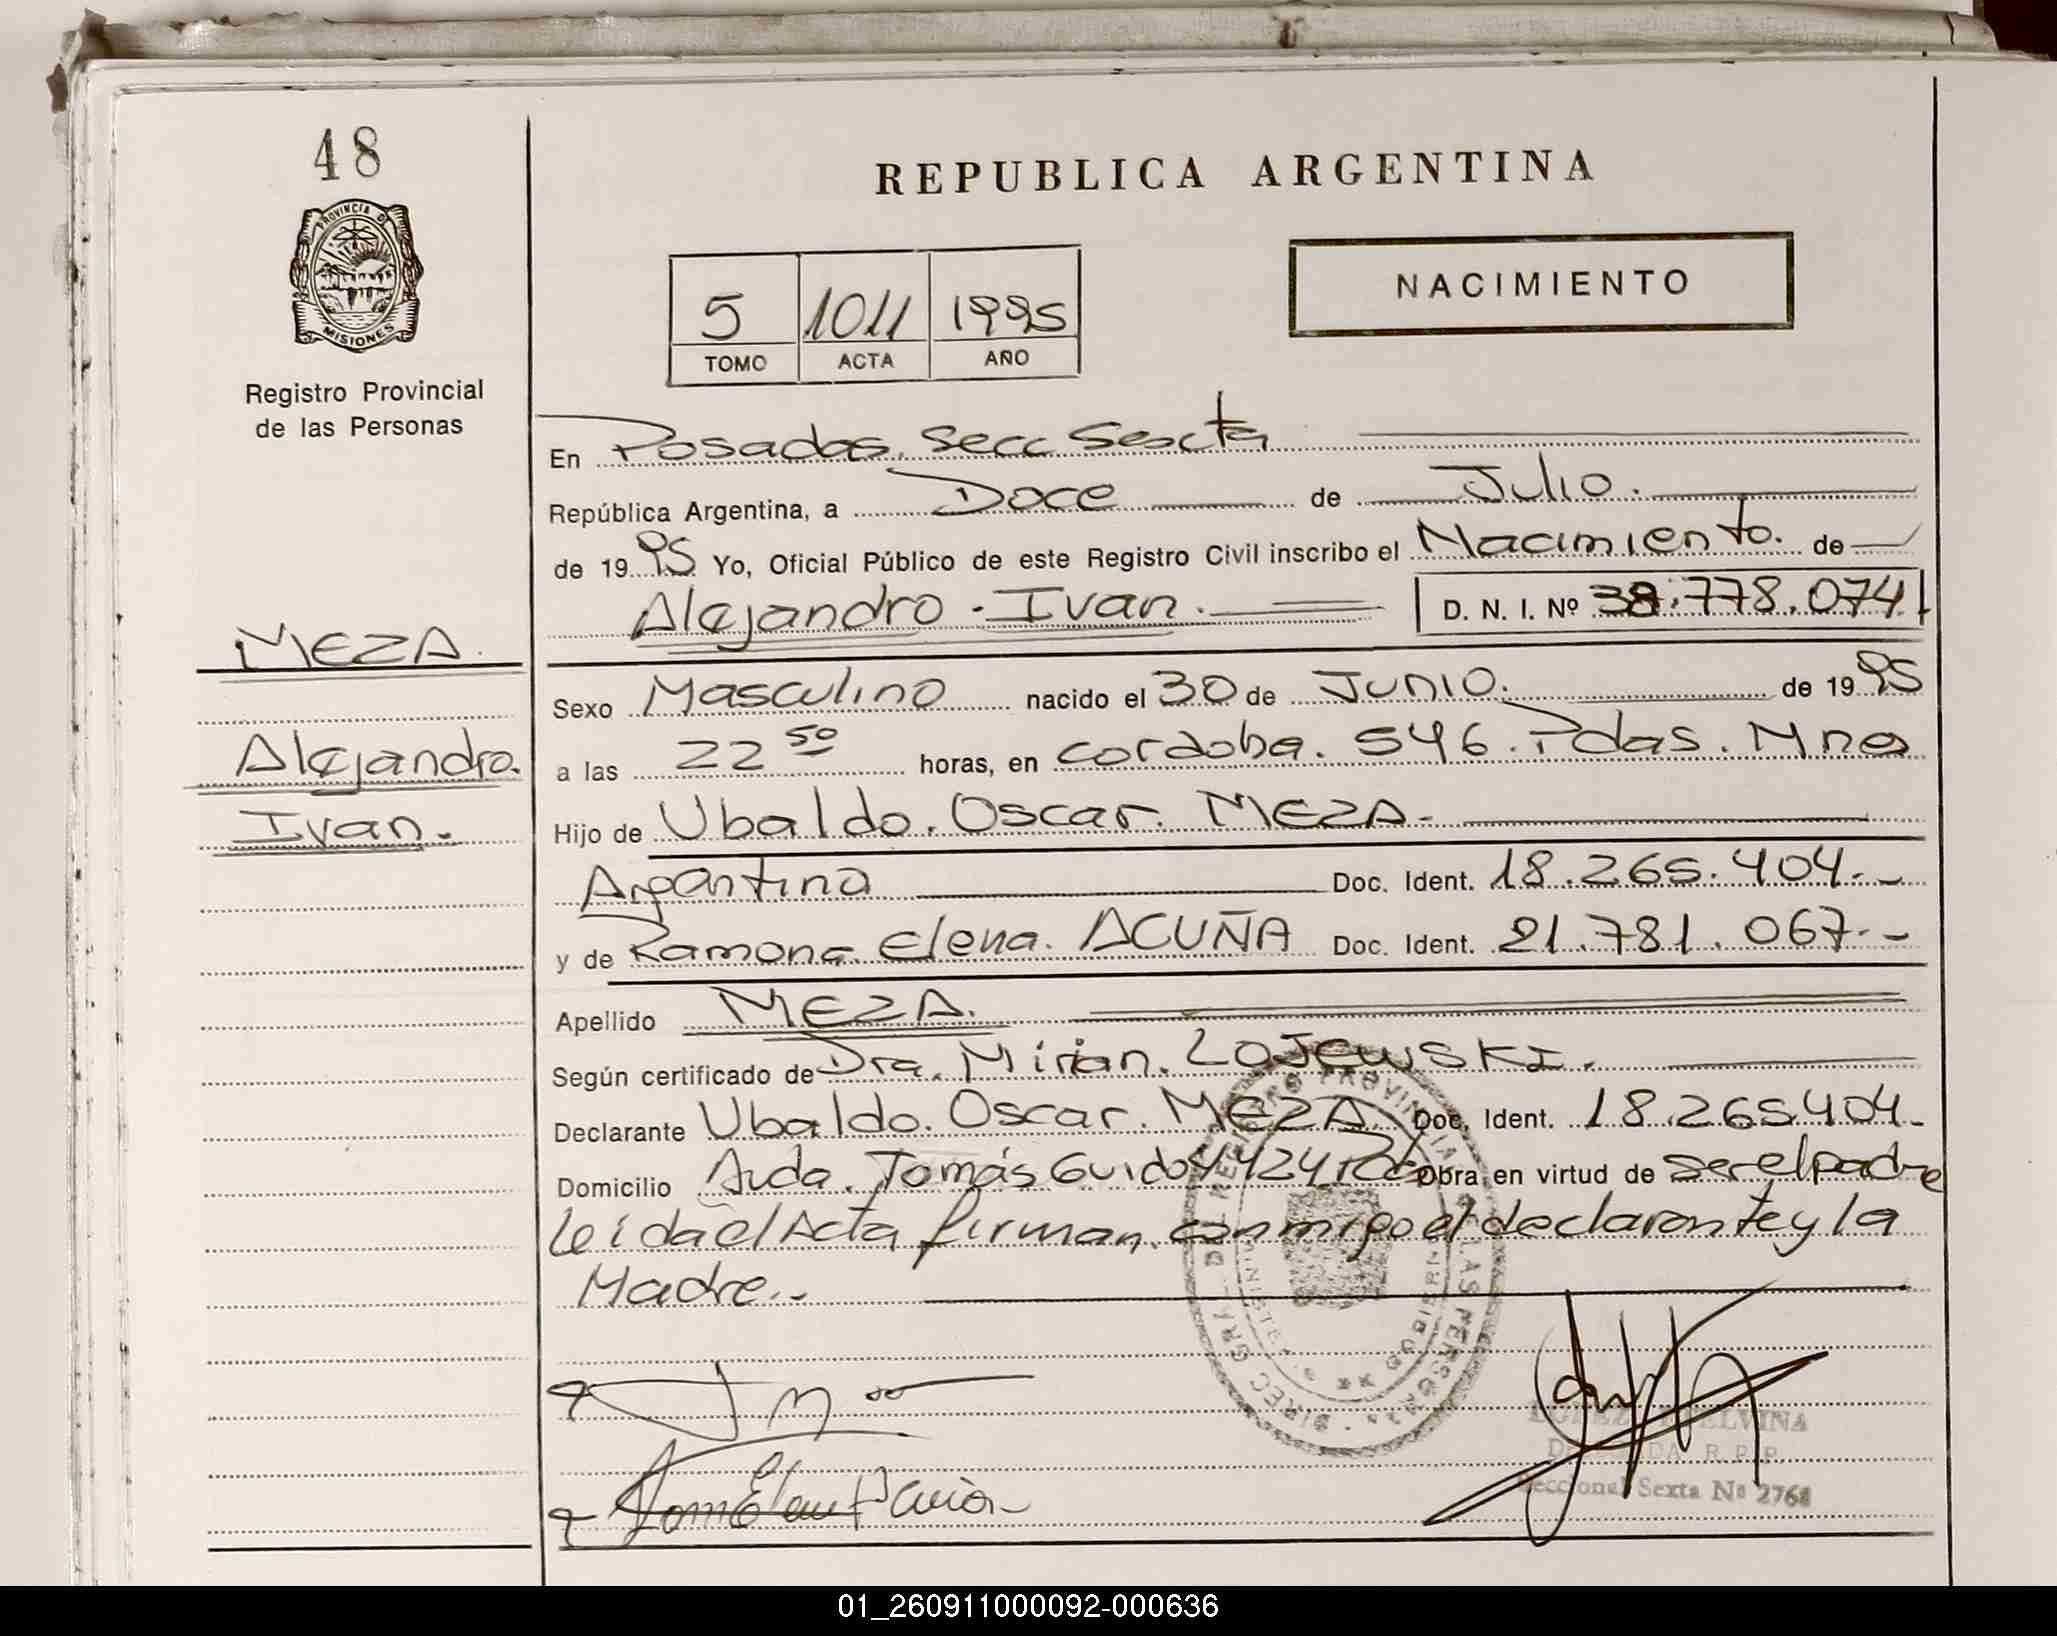 48
REPUBLICA ARGENTINA
PROVINCIA D
MISIONES
NACIMIENTO
5 1011 1995
TOMO ACTA AÑO
Registro Provincial
de las Personas
En Posadas. Secc Sexta
República Argentina, a Doce de Julio.
de 1995 Yo, Oficial Público de este Registro Civil inscribo el Nacimiento. de
Alejandro. Ivan. D. N. I. Nº 38.778.074
MEZA.
Sexo Masculino nacido el 30 de Junio. de 1995
Alejandro.
a las 22 50 horas, en cordoba. 546. Pdas. Mnes
Ivan.
Hijo de Ubaldo. Oscar. MEZA.
Argentina Doc. Ident. 18.265.404.-
y de Ramona Elena. ACUÑA Doc. Ident. 21.781.067.-
Apellido MEZA.
Según certificado de Dra. Mirian. LOJEWSKI.
Declarante Ubaldo. Oscar. MEZA Doc. Ident. 18.265.404.
Domicilio Avda. Tomás Guido 4424 Pdas Obra en virtud de ser el padre
leida el Acta firman conmigo el declarante y la
Madre.-
DIREC. GRAL. DEL REGISTRO PROVINCIAL DE LAS PERSONAS
R. P. P.
Seccional Sexta Nº 2764
01_260911000092-000636